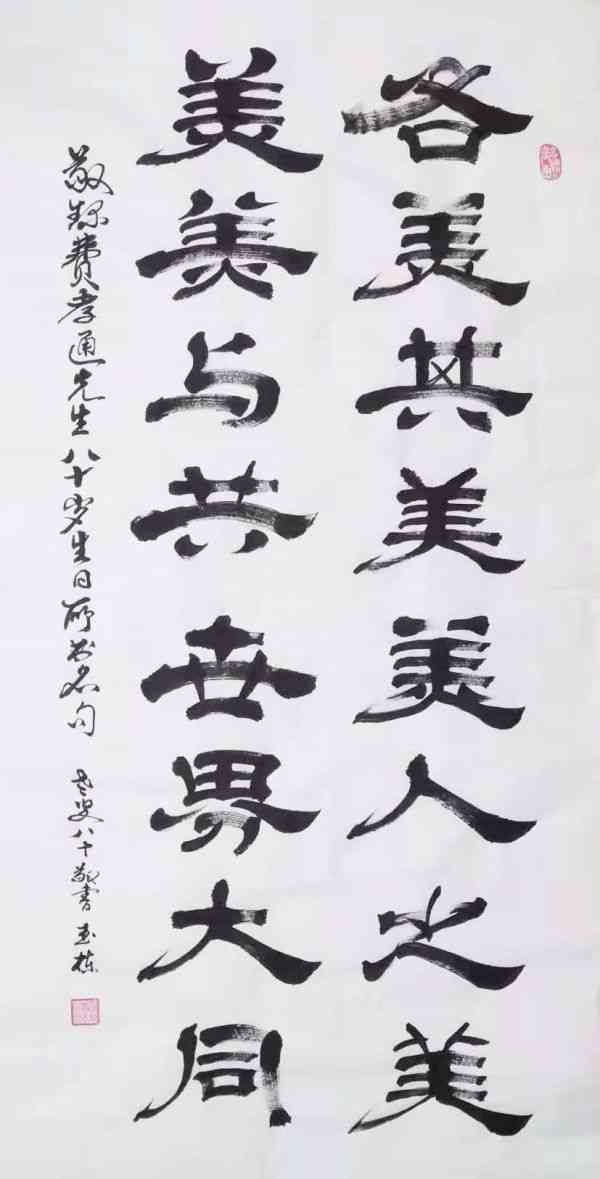 各美其美美人之美
美美与共世界大同
敬録費孝通先生八十岁生日所书名句
老叟八十敬書